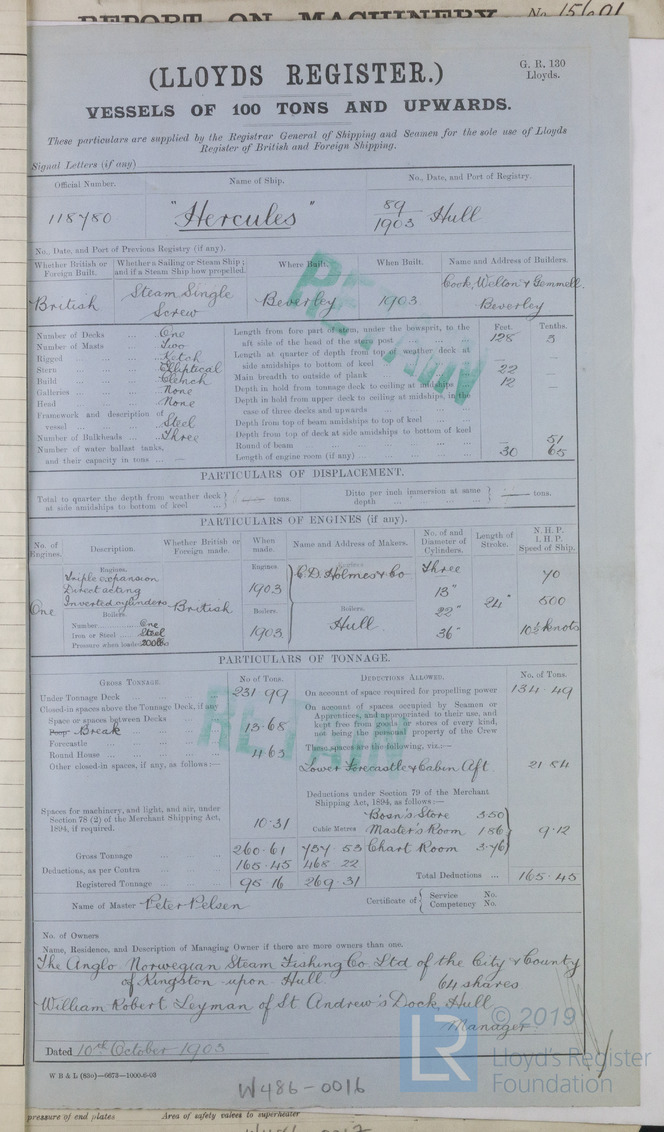 REPORT ON MACHINERY No. 15601
G. R. 130
Lloyds.
(LLOYDS REGISTER.)
VESSELS OF 100 TONS AND UPWARDS.
These particulars are supplied by the Registrar General of Shipping and Seamen for the sole use of Lloyds
Register of British and Foreign Shipping.
Signal Letters (if any)
Official Number. Name of Ship. No., Date, and Port of Registry.
118780 "Hercules" 89/1903 Hull
No., Date, and Port of Previous Registry (if any).
Whether British or Foreign Built. Whether a Sailing or Steam Ship; and if a Steam Ship how propelled. Where Built. When Built. Name and Address of Builders.
British Steam Single Screw Beverley 1903 Cook, Welton & Gemmell. Beverley
RETAIN
Feet. Tenths.
Number of Decks ... One
Number of Masts ... Two
Rigged ... Ketch
Stern ... Elliptical
Build ... Clench
Galleries ... None
Head ... None
Framework and description of vessel ... Steel
Number of Bulkheads ... Three
Number of water ballast tanks, and their capacity in tons ... —
Length from fore part of stem, under the bowsprit, to the aft side of the head of the stern post ... 128 3
Length at quarter of depth from top of weather deck at side amidships to bottom of keel — —
Main breadth to outside of plank 22 —
Depth in hold from tonnage deck to ceiling at midships 12 —
Depth in hold from upper deck to ceiling at midships, in the case of three decks and upwards
Depth from top of beam amidships to top of keel
Depth from top of deck at side amidships to bottom of keel
Round of beam — 51
Length of engine room (if any) 30 65
PARTICULARS OF DISPLACEMENT.
Total to quarter the depth from weather deck at side amidships to bottom of keel ... — tons. Ditto per inch immersion at same depth ... — tons.
PARTICULARS OF ENGINES (if any).
No. of Engines. Description. Whether British or Foreign made. When made. Name and Address of Makers. No. of and Diameter of Cylinders. Length of Stroke. N. H. P. I. H. P. Speed of Ship.
Engines. Engines Engines.
Triple expansion
Direct acting
Inverted cylinders
One British 1903 C.D. Holmes & Co Three 70
13" 24" 500
Boilers. Boilers. Boilers. 22"
Number ... One
Iron or Steel ... Steel 1903 Hull 36" 10½ knots
Pressure when loaded 200 lbs
PARTICULARS OF TONNAGE.
GROSS TONNAGE. No of Tons. DEDUCTIONS ALLOWED. No. of Tons.
Under Tonnage Deck ... 231 99
Closed-in spaces above the Tonnage Deck, if any
Space or spaces between Decks
Poop Break 13·68
Forecastle
Round House ... 4 63
Other closed-in spaces, if any, as follows:—
Spaces for machinery, and light, and air, under Section 78 (2) of the Merchant Shipping Act, 1894, if required. 10·31
On account of space required for propelling power 134·49
On account of spaces occupied by Seamen or Apprentices, and appropriated to their use, and kept free from goods or stores of every kind, not being the personal property of the Crew
These spaces are the following, viz.:—
Lower Forecastle & Cabin Aft. 21 84
Deductions under Section 79 of the Merchant Shipping Act, 1894, as follows:—
Bosn's Store 3·50
Cubic Metres Master's Room 1 86 9·12
Chart Room 3·76
Gross Tonnage ... 260·61 737 53
Deductions, as per Contra ... 165·45 468 22
Registered Tonnage ... 95 16 269·31
Total Deductions ... 165·45
Name of Master Peter Pelsen Certificate of { Service No. Competency No.
RETAIN
No. of Owners
Name, Residence, and Description of Managing Owner if there are more owners than one.
The Anglo Norwegian Steam Fishing Co Ltd of the City & County
of Kingston upon Hull 64 shares
William Robert Leyman of St Andrew's Dock, Hull
Manager
Dated 10th October 1903
W B & L (83o)—6673—1000-6-03
W486-0016
LR © 2019
Lloyd's Register
Foundation
pressure of end plates Area of safety valves to superheater
W486-0017